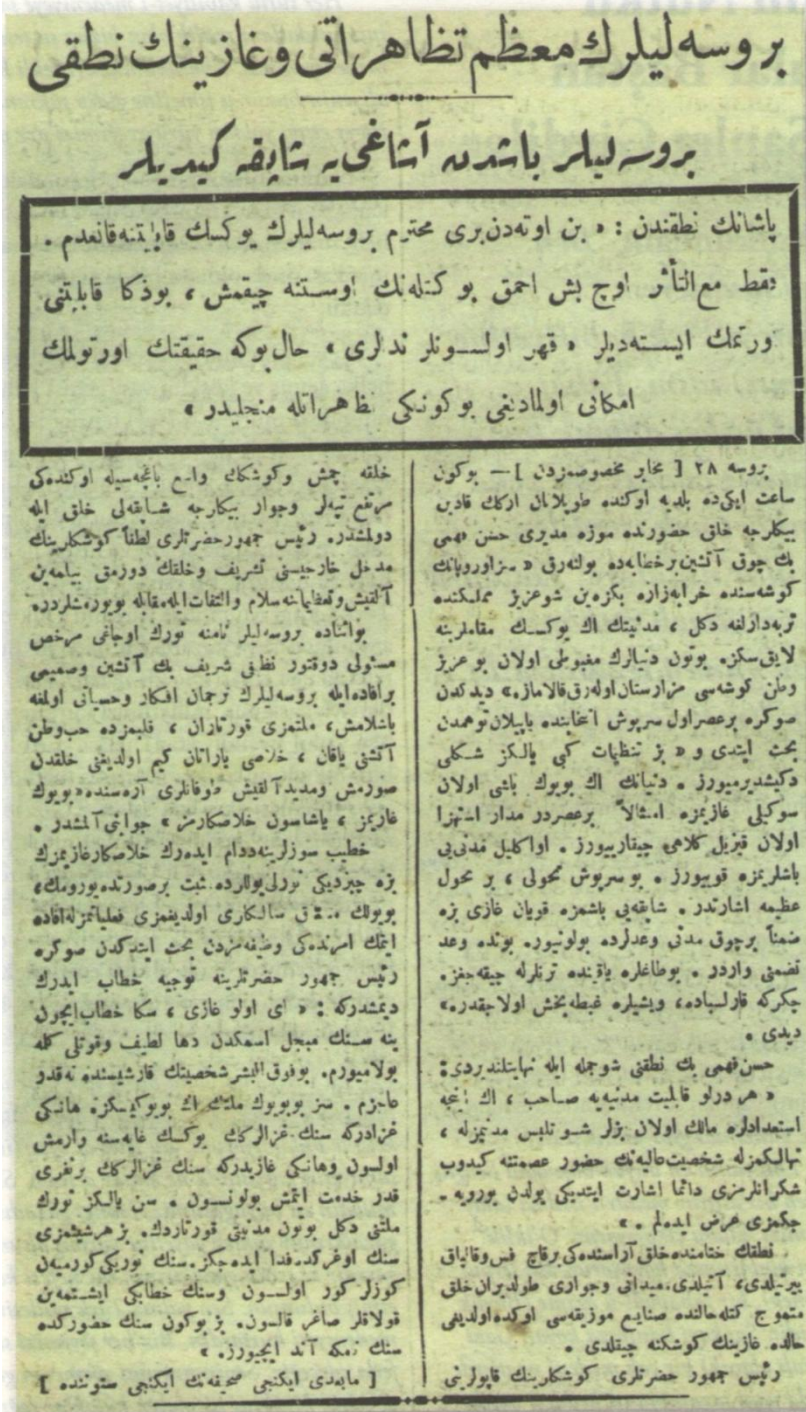 بروسه‌ليلرك معظم تظاهراتی و غازينك نطقی
بروسه ليلر باشدن آشاغی‌يه شاپقه گيديلر
پاشانك نطقندن : « بن اوته‌دن‌بری محترم بروسه‌ليلرك يوكسك قابليتنه‌قانعدم .
فقط مع‌التأثر اوچ بش احمق بو كتله‌نك اوستنه چيقمش ، بوذكا قابليتنی
اورتمك ايسته‌ديلر « قهر اولسونلر ندالری » حال‌بوكه حقيقتك اورتولمك
امكانی اولماديغی بوكونكی تظاهراتله منجليدر »
بروسه ٢٨ [ مخابر مخصوصمزدن ] — بوكون
ساعت ايكی‌ده بلديه اوكنده طوپلانان ارکك قادين
بيكلرجه خلق حضورنده موزه مديری حسن فهمی
بك چوق آتشين‌برخطابه‌ده بولنه‌رق « سزاوروپانك
كوشه‌سنده خرابه‌زاره بكزه‌ين شوعزيز مملكتده
تربه‌دارلغه دكل ، مدنيتك اك يوكسك مقاملرينه
لايق‌سكز. بوتون دنيالرك مغبوطی اولان بو عزيز
وطن كوشه‌سی مزارستان‌اوله‌رق‌قالاماز.» ديدكدن
صوكره برعصراول سرپوش انتخابنده ياپيلان‌توهمدن
بحث ايتدی و « بز تنظيمات كبی يالكز شكلی
دكيشديرميورز . دنيانك اك بويوك باشی اولان
سوكيلی غازيمزه امتثالاً برعصردر مدار استهزا
اولان قيزيل كلاهی چيقارييورز . اواكليل مدنی‌يی
باشلريمزه قويييورز . بوسرپوش تحولی ، بر تحول
عظيمه اشارتدر . شاپقه‌يی باشمزه قويان غازی بزه
ضمناً برچوق مدنی وعدلرده بولونيور. بونده وعد
تضمنی واردر . بوطاغلره ياقينده ترنلرله چيقه‌جغز.
چكركه قارلسباده، ويشيلره غبطه‌بخش اولاجقدر.»
ديدی .
حسن‌فهمی بك نطقنی شوجمله ايله نهايتلنديردی:
« هر درلو قابليت مدنيه‌يه صاحب ، اك اينجه
استعدادلره مالك اولان بزلر شو تلبس مدنيمزله ،
تهالكمزله شخصيت‌عاليه‌نك حضور عصمتنه كيدوب
شكرانلرمزی دائما اشارت ايتديكی يولدن يورويه -
جكمزی عرض ايده‌لم . »
نطقك ختامنده‌خلق‌آراسنده‌كی‌برقاچ فس‌وقالپاق
ييرتيلدی، آتيلدی.ميدانی وجواری طولديران‌خلق
متموج كتله‌حالنده صنايع موزيقه‌سی اوكده‌اولديغی
حالده غازينك كوشكنه چيقلدی .
رئيس جمهور حضرتلری كوشكلرينك قاپولرينی
خلقه آچمش وكوشكك واسع باغچه‌سيله اوكنده‌كی
مرتفع تپه‌لر وجوار بيكلرجه شاپقه‌لی خلق ايله
دولمشدر. رئيس جمهورحضرتلری لطفاً كوشكلرينك
مدخل خارجيسنی تشريف وخلقك دورمق بيلمه‌ين
آلقيش‌وتعظيماته‌سلام والتفات‌ايله‌مقابله بويورمشلردر.
بواثناده بروسه‌ليلر نامنه تورك اوجاغی مرخص
مسئولی دوقتور نظمی شريف بك آتشين وصميمی
برافاده‌ايله بروسه‌ليلرك ترجمان افكار وحسياتی اولمغه
باشلامش، ملتمزی قورتاران ، قلبمزده حب‌وطن
آتشنی ياقان ، خلاصی ياراتان كيم اولديغنی خلقدن
صورمش ومديدآلقيش طوفانلری آره‌سنده«بويوك
غازيمز ، ياشاسون خلاصكارمز » جوابنی‌آلمشدر .
خطيب سوزلرينه‌دوام ايده‌رك خلاصكارغازيمزك
بزه چيزديكی نورلی‌يوللرده ثبت برصورتده‌يورومك،
بويولك عاشق سالكلری اولديغمزی فعلياتمزله‌افاده
ايتمك امرنده‌كی وظيفه‌مزدن بحث ايتدكدن صوكره
رئيس جمهور حضرتلرينه توجيه خطاب ايدرك
ديمشدركه : « ای اولو غازی ، سكا خطاب‌ايچون
ينه سنك مبجل اسمكدن دها لطيف وقوتلی كلمه
بولاميورم. بوفوق‌البشرشخصيتك قارشيسنده نه‌قدر
عاجزم . سز بوبويوك ملتك اك بويوكيسكز. هانكی
غزادركه سنك غزالركك يوكسك غايه‌سنه وارمش
اولسون وهانكی غازيدركه سنك غزالركك برنفری
قدر خدمت ايتمش بولونسون . سن يالكز تورك
ملتنی دكل بوتون مدنيتی قورتاردك. بزهرشيئمزی
سنك اوغركده‌فدا ايده‌جكز.سنك نوريكی‌كورميه‌ن
كوزلر كور اولسون وسنك خطابكی ايشتمه‌ين
قولاقلر صاغر قالسون. بز بوكون سنك حضوركده
سنك نامكه آند ايچيورز. »
[ مابعدی ايكنجی صحيفه‌نك ايكنجی ستوننده ]